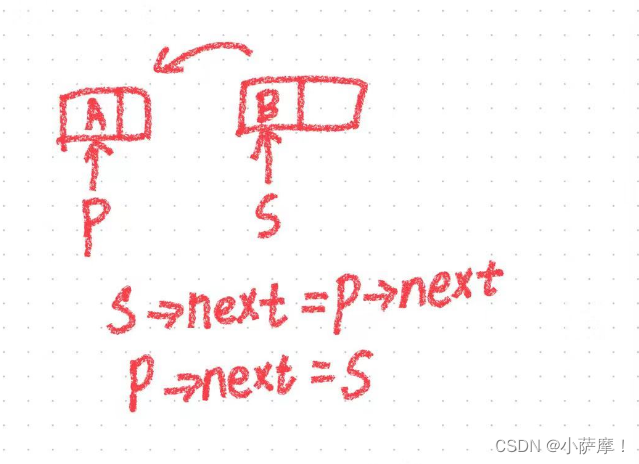 A B
P S
S→next=P→next
P→next=S
CSDN @小萨摩！